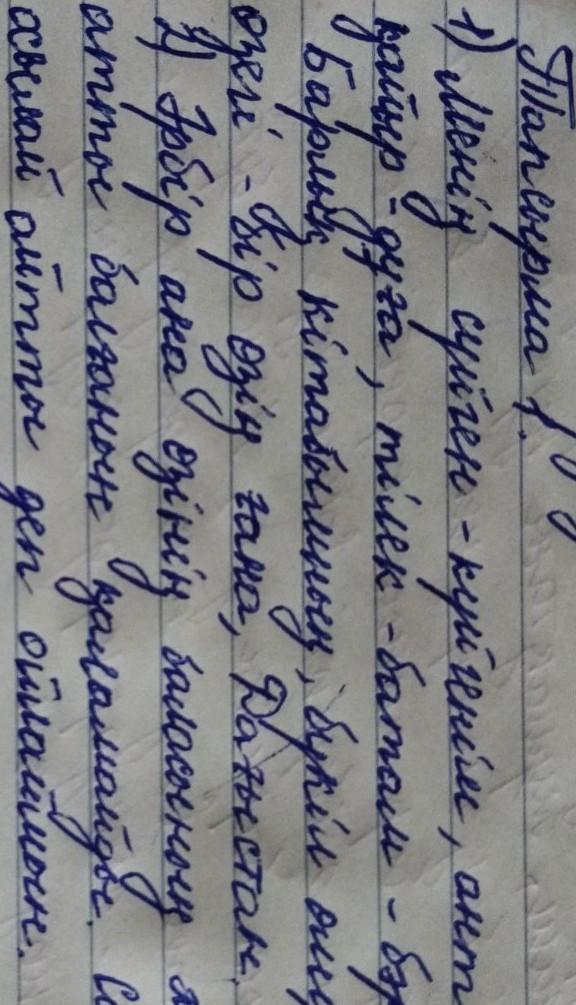 Тапсырма 1.
1) Менің сүйген - күйгенім, ант
қайыр - дұға, тілек - батам - бә
Барлық кітабымның, бүкіл өмі
өзегі - бір өзің ғана, Дағыстан.
2) Әрбір ана өзінің баласының
атты болғанын қаламайды.
осылай айтты деп ойлаймын.